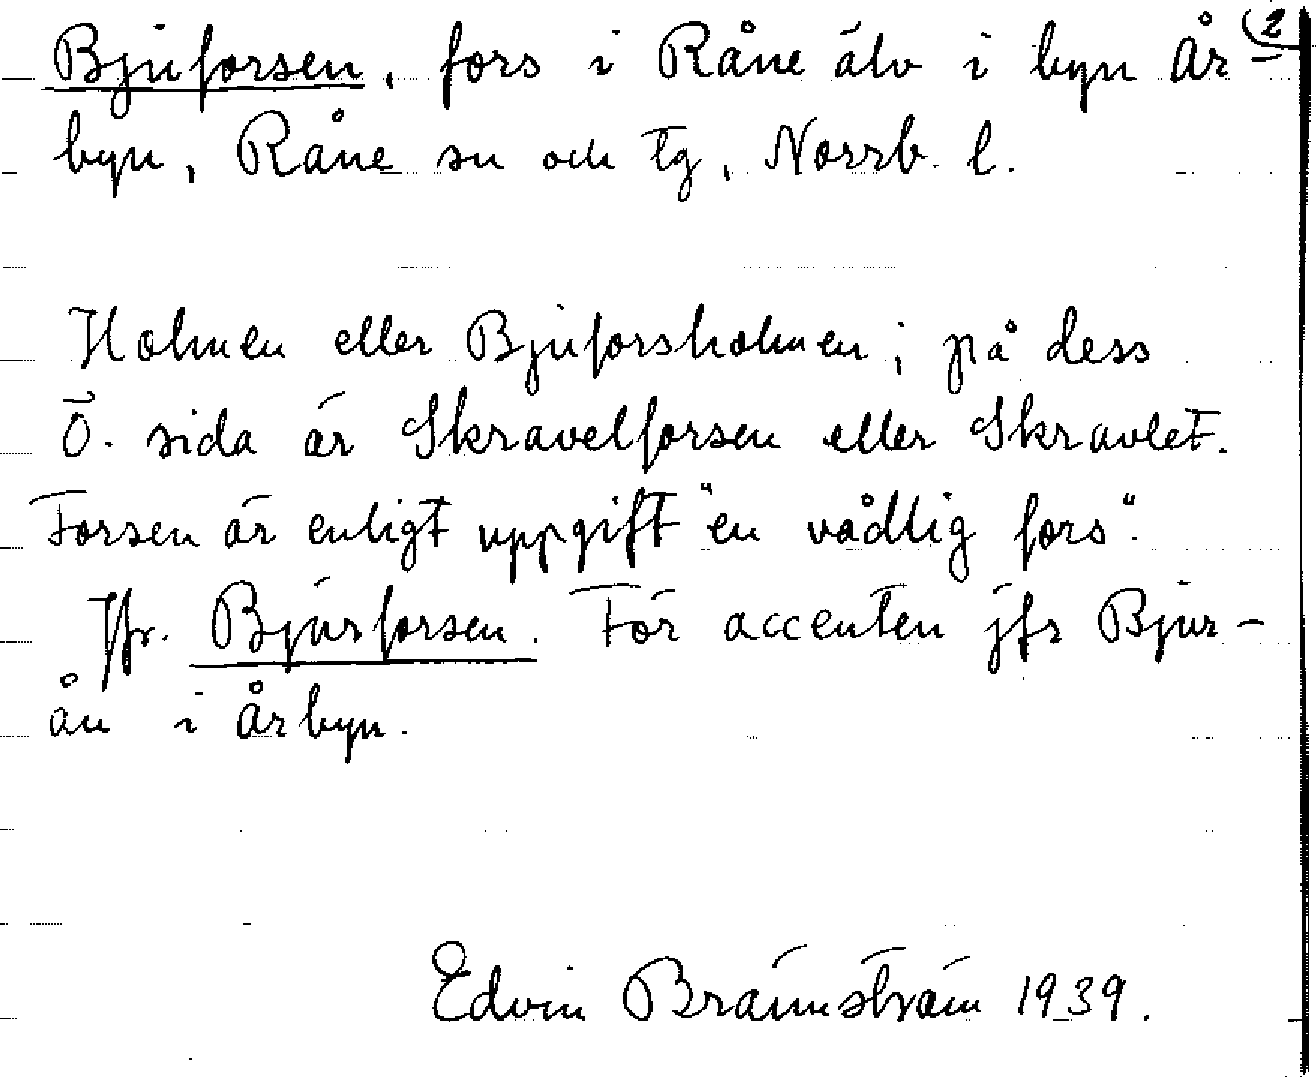 (2
Bjuforsen, fors i Råne älv i byn År-
byn, Råne sn och tg, Norrb. l.
Holmen eller Bjuforsholmen; på dess
Ö. sida är Skravelforsen eller Skravlet.
Forsen är enligt uppgift "en vådlig fors".
Jfr. Bjursforsen. För accenten jfr Bjur-
ån i Årbyn.
Edvin Brännström 1939.